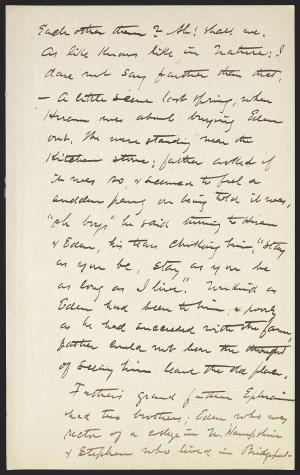 Each other then? Ah! shall we.
As like knows like in Nature; I
dare not say farther than that,
— A little scene last spring, when
Hiram was about buying Eden
out. We were standing near the
Kitchen stove; father asked if
it was so, & seemed to feel a
sudden pang on being told it was,
"oh boys" he said turning to Hiram
& Eden, his tears choking him, "stay
as you be, stay as you be
as long as I live". Unkind as
Eden had been to him, & poorly
as he had succeeded with the farm,
father could not bear the thought
of seeing him leave the old place.
Father's grand father Ephraim
had two brothers; Eden who was
rector of a college in N. Hampshire
& Stephen who lived in Bridgeport